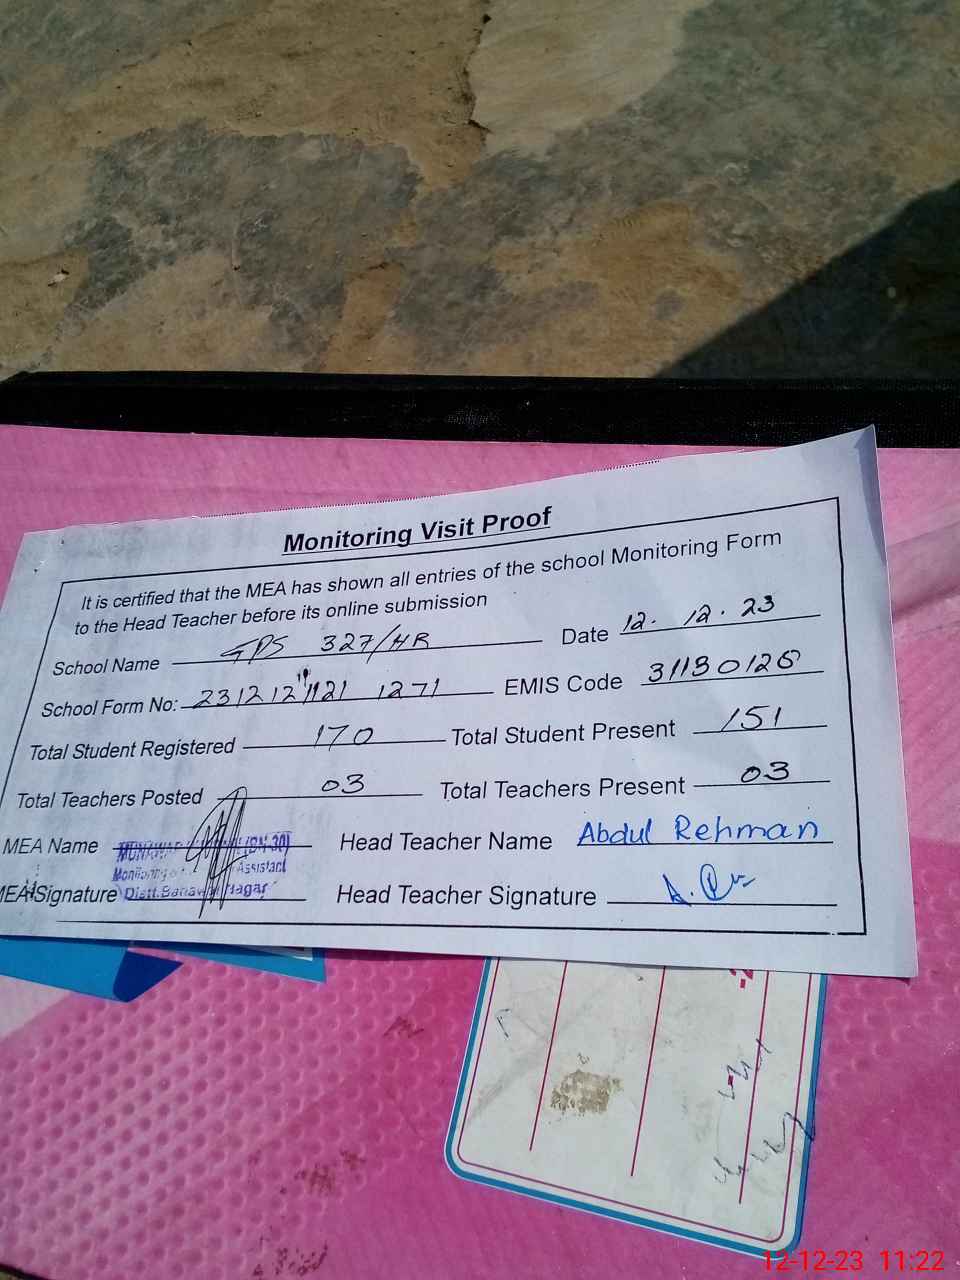 Monitoring Visit Proof
It is certified that the MEA has shown all entries of the school Monitoring Form
to the Head Teacher before its online submission
School Name GPS 327/HR Date 12. 12. 23
School Form No: 23121211121 1271 EMIS Code 31130126
Total Student Registered 170 Total Student Present 151
Total Teachers Posted 03 Total Teachers Present 03
MEA Name Head Teacher Name Abdul Rehman
MEA Signature Head Teacher Signature
Assistant
Distt.
12-12-23 11:22